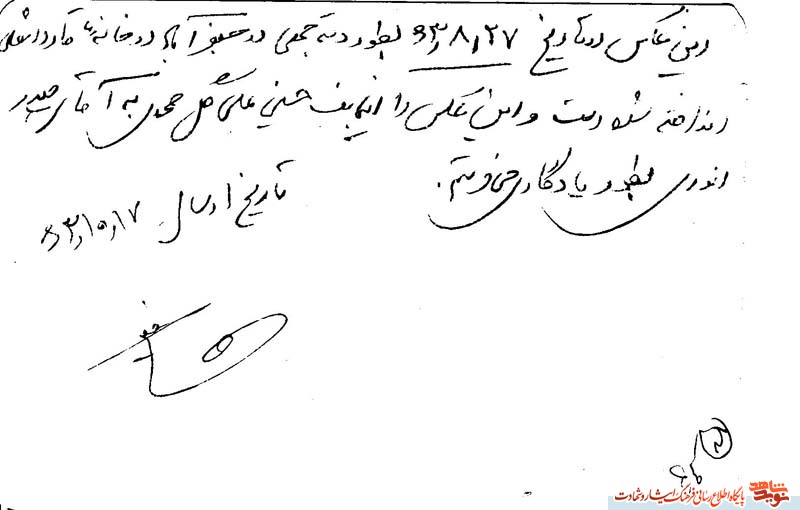 این عکس در تاریخ ۶۳٫۸٫۲۷ بطور دسته جمعی در جعفرآباد در خانه
انداخته شده است و این عکس را اینجانب حسینعلی گل محمدی به آقای حیدر
انوری بطور یادگاری می‌فرستم.
تاریخ ارسال ۶۳٫۱۰٫۱۷
نوید شاهد
پایگاه اطلاع رسانی فرهنگ ایثار و شهادت